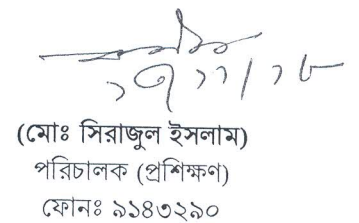 ১৭/১১/১৮
(মোঃ সিরাজুল ইসলাম)
পরিচালক (প্রশিক্ষণ)
ফোনঃ ৯১৪৩২৯০